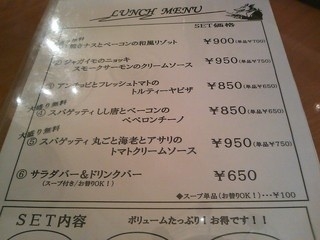 LUNCH MENU
SET価格
大盛り無料
ナスとベーコンの和風リゾット ¥900(単品¥700)
② ジャガイモのニョッキ
スモークサーモンのクリームソース ¥950(単品¥750)
③ アンチョビとフレッシュトマトの
トルティーヤピザ ¥850(単品¥650)
大盛り無料
④ スパゲッティ しし唐とベーコンの
ペペロンチーノ ¥850(単品¥650)
大盛り無料
⑤ スパゲッティ 丸ごと海老とアサリの
トマトクリームソース ¥950(単品¥750)
⑥ サラダバー&ドリンクバー ¥650
(スープ付き/お替りOK!)
◆スープ単品(お替りOK!)…¥100
SET内容 ボリュームたっぷり!お得です!!